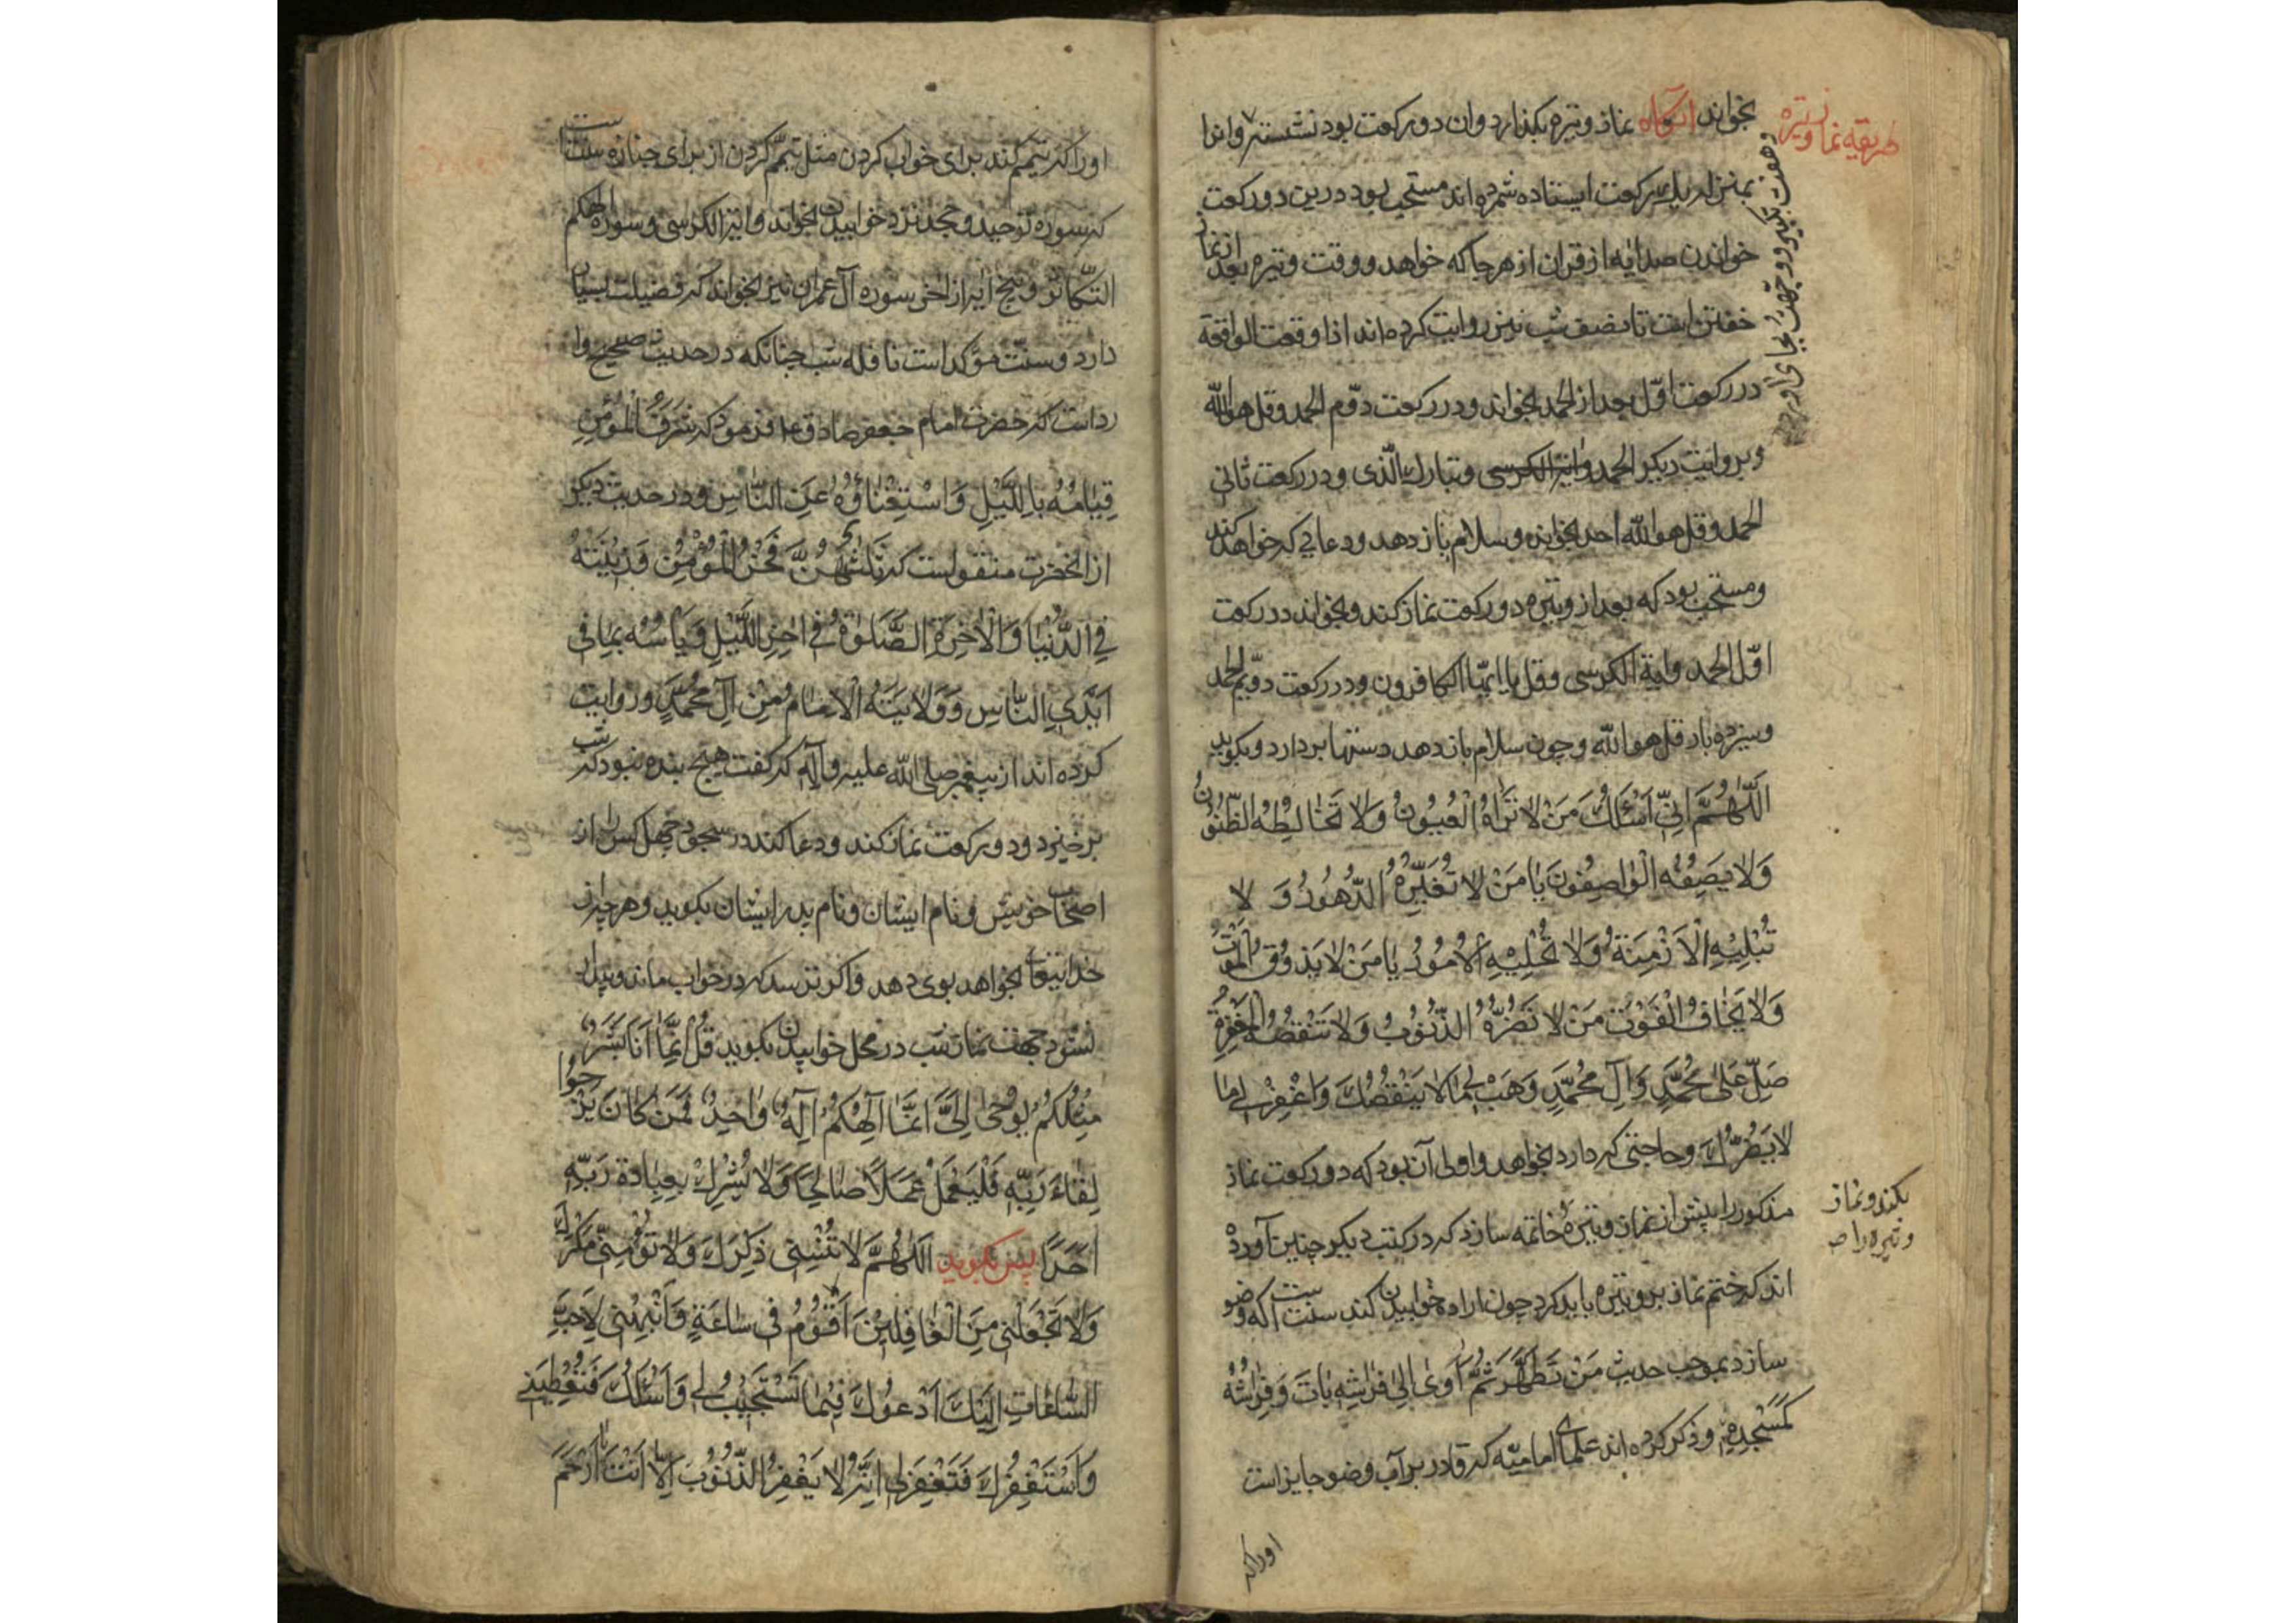 طریقه نماز وتیره
بخواند آنگاه نماز وتیره بگذارد وان دو رکعت بود نشسته و انرا
و هفت تکبیر و وجّهت بجای آورد
بمنزله یک رکعت ایستاده شمرده اند مستحب بود درین دو رکعت
خواندن صد ایه از قران از هر جا که خواهد و وقت وتیره بعد از نماز
خفتن است تا نصف شب نیز روایت کرده اند اذا وقعت الواقعة
در رکعت اوّل بعد از الحمد بخواند و در رکعت دوّم الحمد و قل هو الله
و بروایت دیکر الحمد وایة الکرسی و تبارک الّذی و در رکعت ثانی
الحمد و قل هو الله احد بخواند و سلام باز دهد و دعایی که خواهد کند
و مستحب بود که بعد از وتیره دو رکعت نماز کند و بخواند در رکعت
اوّل الحمد وایة الکرسی و قل یا ایّها الکافرون و در رکعت دویّم الحمد
و سیزده بار قل هو الله و چون سلام باز دهد دستها بردارد و بکوید
اَللّهُمَّ اِنّی اَسْئَلُكَ مَنْ لا تَراهُ الْعُیُونُ وَلا تُخالِطُهُ الظُّنُونُ
وَلا یَصِفُهُ الْواصِفُونَ یا مَنْ لا تُغَیِّرُهُ الدُّهُورُ وَ لا
تُبْلِیهِ الْاَزْمِنَةُ وَلا تُحْلِیهِ الْاُمُورُ یا مَنْ لا یَذُوقُ الْمَوْتَ
وَلا یَخافُ الْفَوْتَ مَنْ لا تَضُرُّهُ الذُّنُوبُ وَلا تَنْقُصُهُ الْمَغْفِرَةُ
صَلِّ عَلیٰ مُحَمَّدٍ وَآلِ مُحَمَّدٍ وَهَبْ لی ما لا یَنْقُصُكَ وَاغْفِرْ لی ما
لا یَضُرُّكَ و حاجتی که دارد بخواهد و اولی آن بود که دو رکعت نماز
مذکور را پیش از نماز وتیره خاتمه سازد که در کتب دیکر چنین آورده
بکند و نماز
وتیره را ص
اند که ختم نماز بر وتیره باید کرد چون اراده خوابیدن کند سنت است که وضو
سازد بموجب حدیث مَنْ تَطَهَّرَ ثُمَّ آوی اِلیٰ فِراشِهِ باتَ وَفِراشُهُ
کَمَسْجِدِهِ و ذکر کرده اند علمای امامیّه که قادر بر آب وضو جایز است
اوراکه
اوراکه تیمّم کند برای خواب کردن مثل تیمّم کردن از برای جنازه سنّت است
که سوره توحید و جحد نزد خوابیدن بخواند وایة الکرسی و سوره الهکم
التّکاثر و پنج ایه از اخر سوره آل عمران نیز بخواند که فضیلت بسیار
دارد و سنّت مؤکد است نافله شب چنانکه در حدیث صحیح وا
رداست که حضرت امام جعفر صادق ع فرمود که شَرَفُ الْمُؤْمِنِ
قِیامُهُ بِاللَّیْلِ وَاسْتِغْناؤُهُ عَنِ النّاسِ و در حدیث دیکر
از انحضرت منقولست که ثَلٰثٌ هُنَّ فَخْرُ الْمُؤْمِنِ وَ زِینَتُهُ
فِی الدُّنْیا وَالْاٰخِرَةِ الصَّلوٰةُ فی اٰخِرِ اللَّیْلِ وَ یَأْسُهُ بِما فی
اَیْدِی النّاسِ وَ وَلایَتُهُ الْاِمامُ مِنْ آلِ مُحَمَّدٍ و روایت
کرده اند از پیغمبر صلی الله علیه وآله که گفت هیچ بنده نبود که شب
برخیزد و دو رکعت نماز کند و دعا کند در سجود چهل کس را از
اصحاب خویش و نام ایشان و نام پدر ایشان بکوید و هر چه از
خدایتعالی بخواهد بوی دهد و اکر ترسد که در خواب ماند و بیدار
نشود جهت نماز شب در محل خوابیدن بکوید قُلْ اِنَّما اَنَا بَشَرٌ
مِثْلُکُمْ یُوحیٰ اِلَیَّ اَنَّما اِلٰهُکُمْ اِلٰهٌ واحِدٌ فَمَنْ کانَ یَرْجُوا
لِقاءَ رَبِّهِ فَلْیَعْمَلْ عَمَلًا صالِحًا وَلا یُشْرِكْ بِعِبادَةِ رَبِّهِ
اَحَدًا پس بکوید اَللّهُمَّ لا تُنْسِنی ذِکْرَكَ وَلا تُؤْمِنّی مَکْرَكَ
وَلا تَجْعَلْنی مِنَ الْغافِلینَ اَقُومُ فی ساعَةٍ وَاَنْبِهْنی لِاَحَبِّ
السّاعاتِ اِلَیْكَ اَدْعُوكَ فیما تَسْتَجیبُ لی وَاَسْئَلُكَ فَتُعْطِیَنی
وَاَسْتَغْفِرُكَ فَتَغْفِرَ لی اِنَّهُ لا یَغْفِرُ الذُّنُوبَ اِلّا اَنْتَ یا اَرْحَمَ